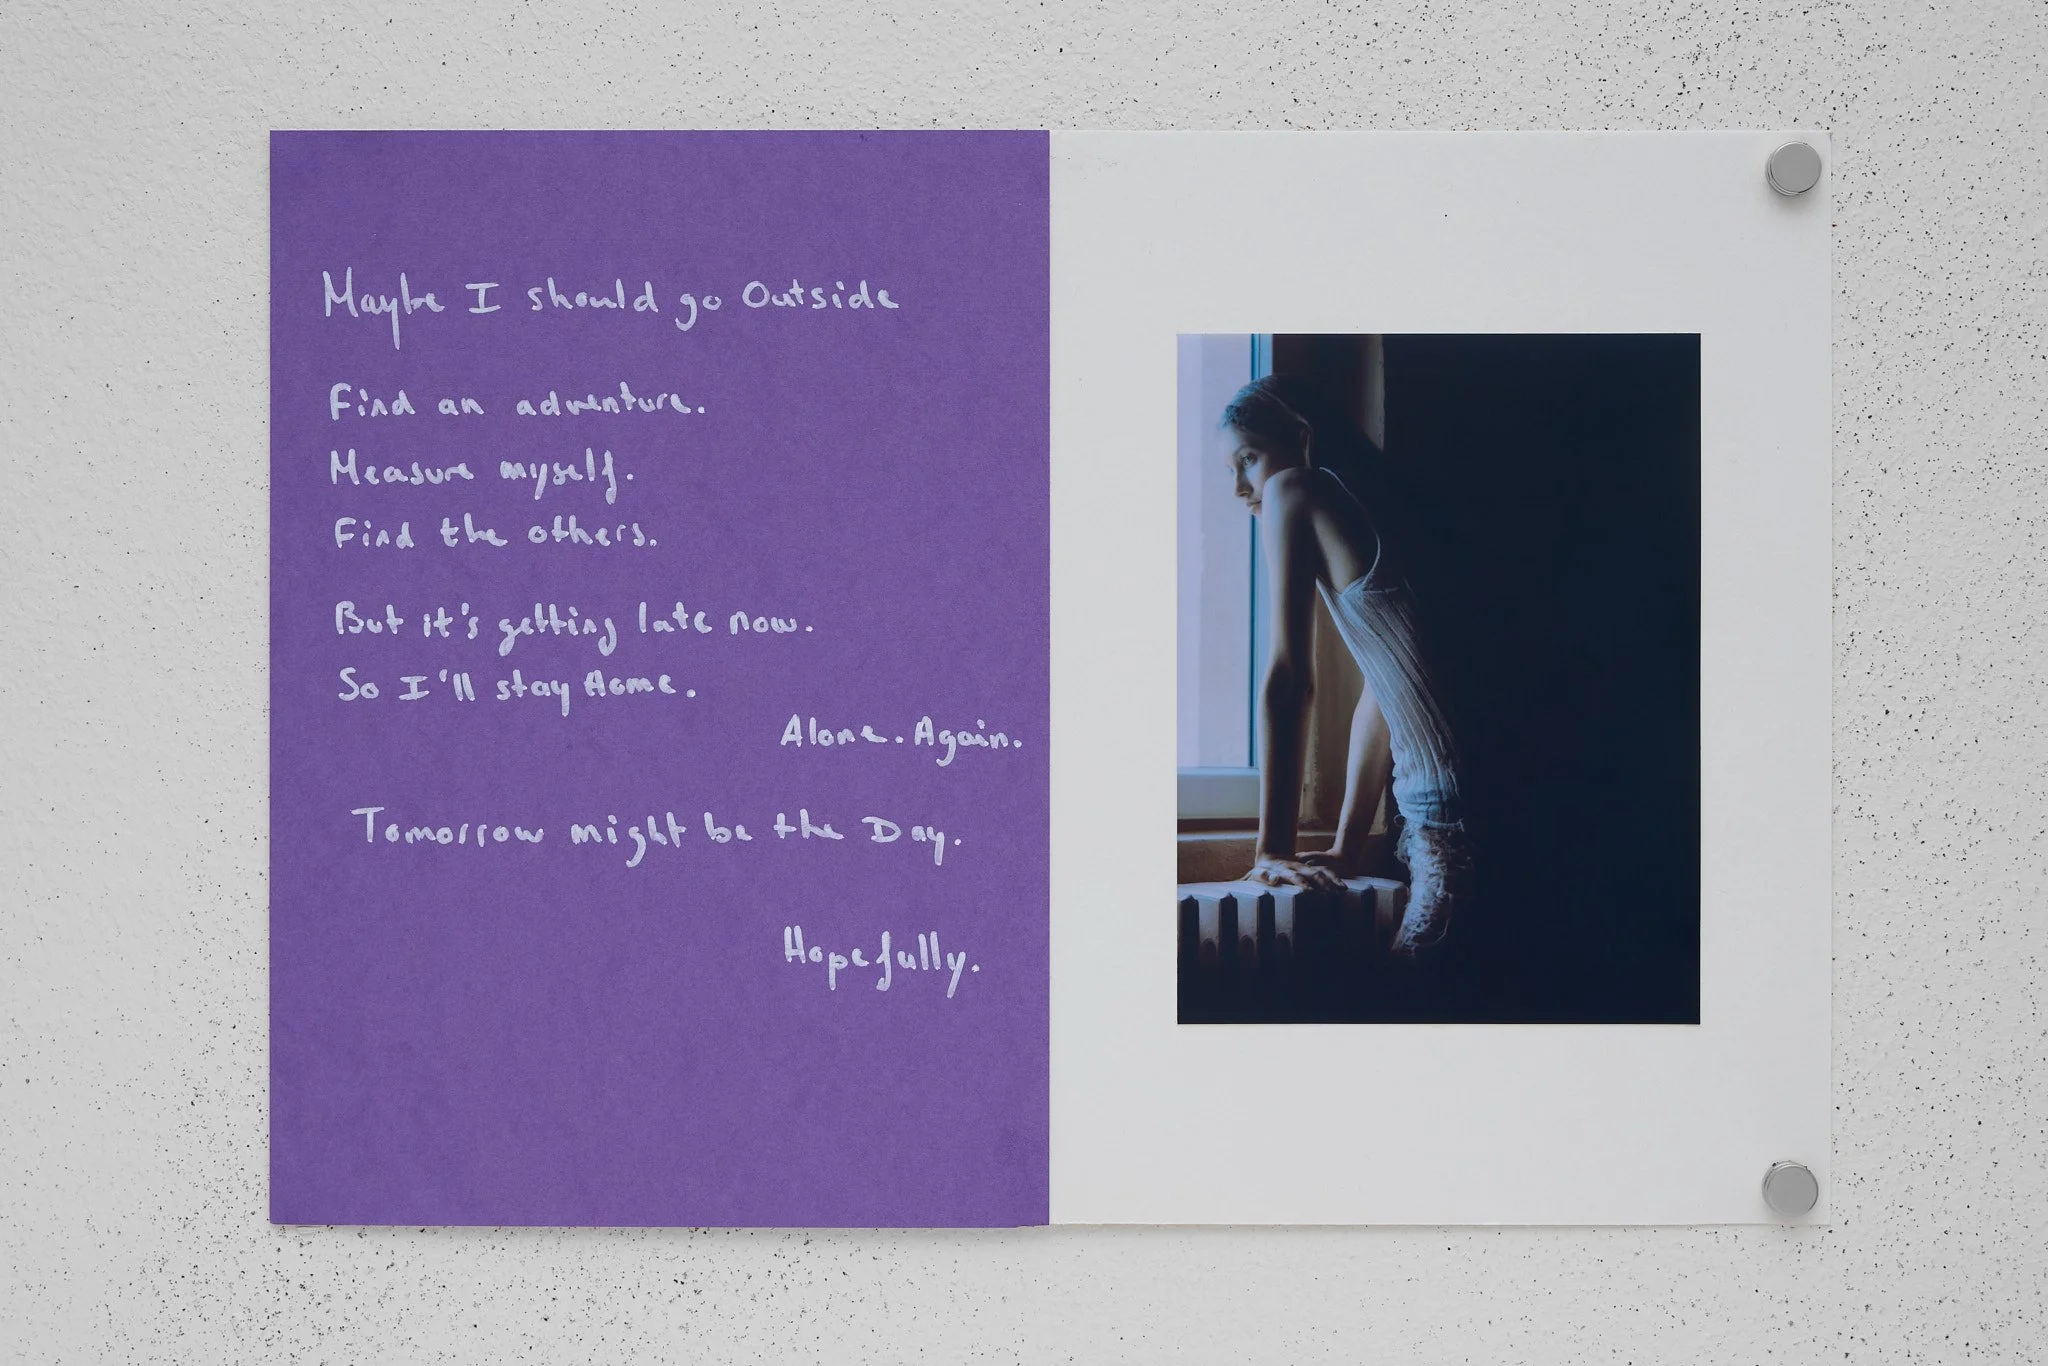 Maybe I should go Outside
Find an adventure.
Measure myself.
Find the others.
But it's getting late now.
So I'll stay Home.
Alone. Again.
Tomorrow might be the Day.
Hopefully.